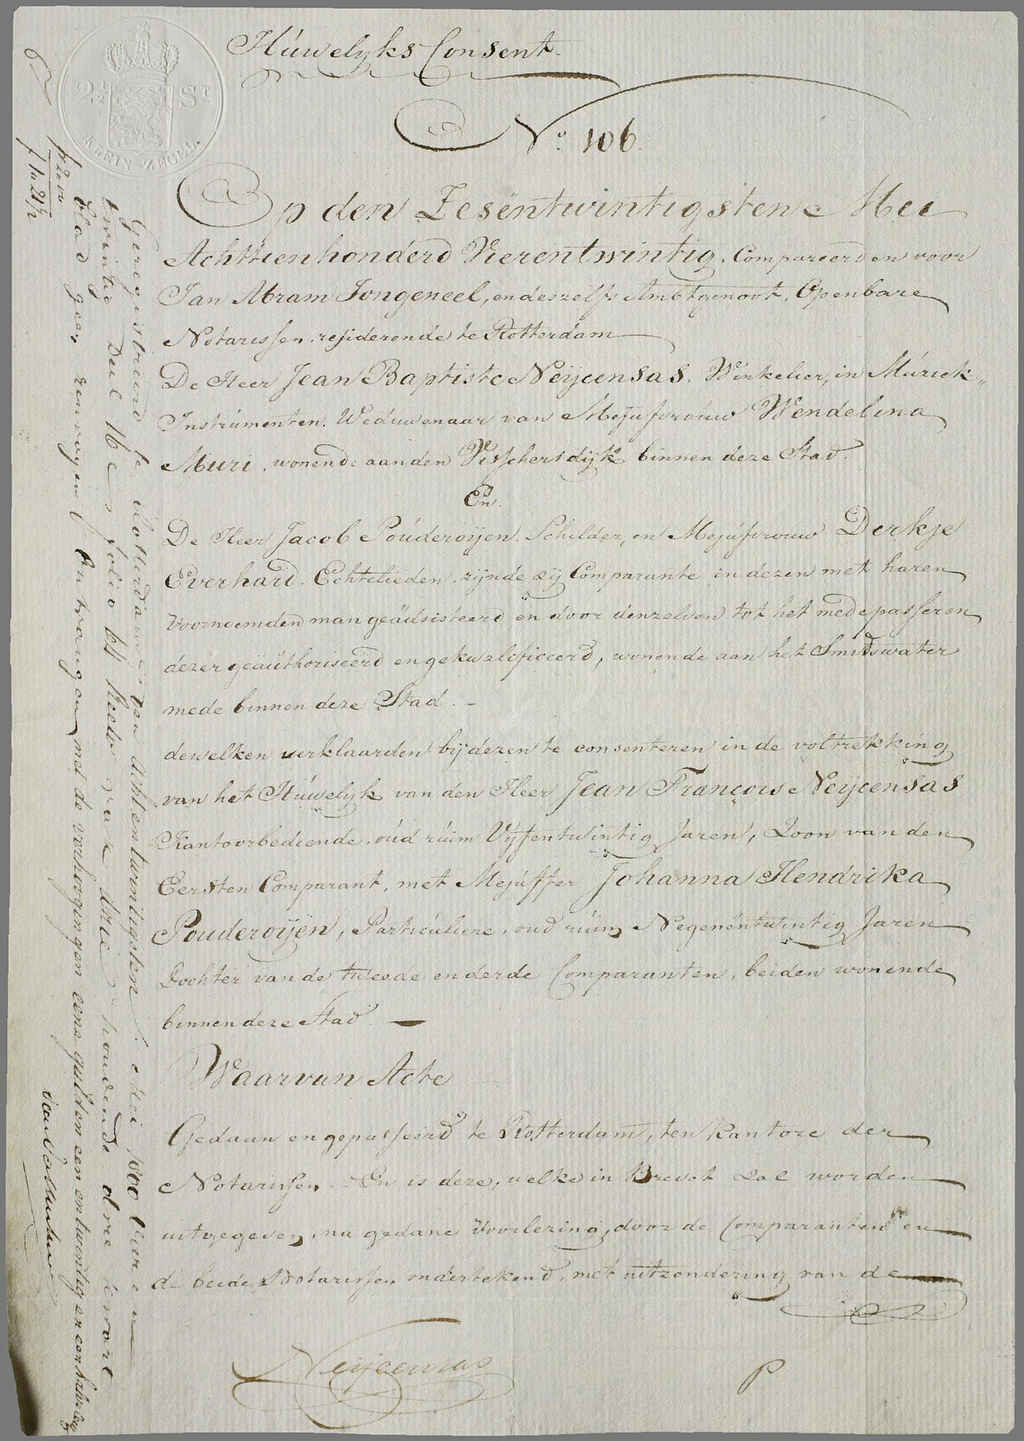 Húwelyks Consent.
2½ St
KLEIN ZEGEL.
No. 106.
Op den Zesentwintigsten Mei
Achttienhonderd Vierentwintig, Compareerden voor
Jan Abram Jongeneel, en deszelfs Ambtgenoot, Openbare
Notarissen, resideerende te Rotterdam
De Heer Jean Baptiste Neijcensas. Winkelier, in Múziek-
Instrúmenten, Weduwenaar van Mejufvrouw Wendelina
Muri, wonende aan den Visschersdijk binnen deze Stad.
En.
De Heer Jacob Poúderoijen. Schilder, en Mejúfvrouw Derkje
Everhard. Echtelieden, zijnde zij Comparante in dezen met haren
voornoemden man geädsisteerd en door denzelven tot het mede passeren
dezer geäúthoriseerd en gekwalificeerd, wonende aan het Smidswater
mede binnen deze Stad. -
dewelken verklaarden bij dezen te consenteren in de voltrekking
van het Húwelyk van den Heer Jean François Neijcensas
Kantoorbediende, oúd rúim Vijfentwintig Jaren, Zoon van den
Eersten Comparant, met Mejúffer Johanna Hendrika
Pouderoijen, Particúliere, oud rúim Negenëntwintig Jaren
Dochter van de tweede en derde Comparanten, beiden wonende
binnen deze Stad. —
Waarvan Acte
Gedaan en gepasseerd te Rotterdam, ten kantore der
Notarissen. En is deze, welke in Brevet zal worden
uitgegeven, na gedane Voorlezing, door de Comparanten en
de beide Notarissen ondertekend, met uitzondering van de
Neijcensas
P
Geregistreerd te Rotterdam den achtentwintigsten Mei 1800 vier en
twintig Deel 16 folio 64 recto vak drie houdende drie kwart
blad geen renvoijen Ontvangen met de verhoogingen eene gulden een en twintig en een halve Cent
f 1 " 21½